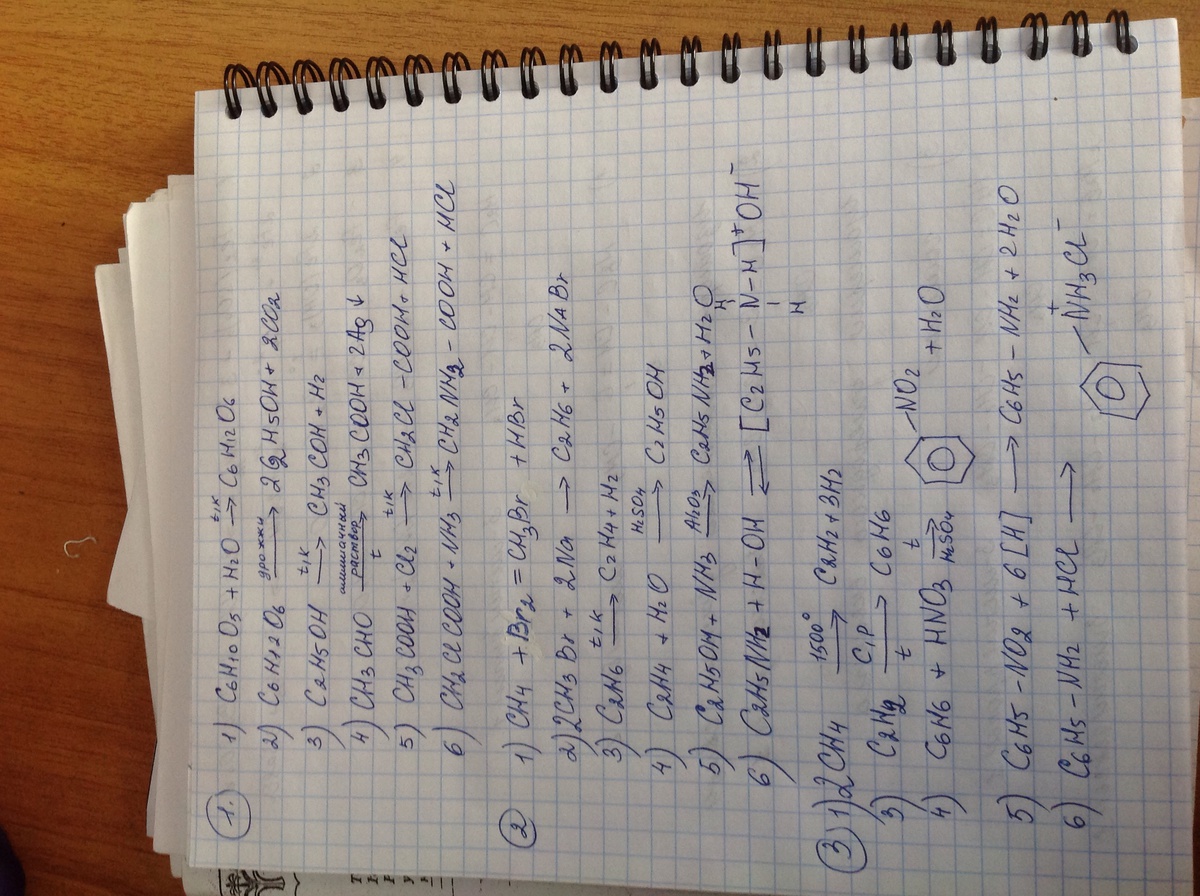 1.
1) C6H10O5 + H2O t,к → C6H12O6
2) C6H12O6 дрожжи → 2C2H5OH + 2CO2
3) C2H5OH t,к → CH3COH + H2
4) CH3CHO аммиачный раствор t → CH3COOH + 2Ag↓
5) CH3COOH + Cl2 t,к → CH2Cl-COOH + HCl
6) CH2ClCOOH + NH3 t,к → CH2NH2-COOH + HCl
2
1) CH4 + Br2 = CH3Br + HBr
2) 2CH3Br + 2Na → C2H6 + 2NaBr
3) C2H6 t,к → C2H4 + H2
4) C2H4 + H2O H2SO4 → C2H5OH
5) C2H5OH + NH3 Al2O3 → C2H5NH2 + H2O
6) C2H5NH2 + H-OH ⇌ [C2H5-N-H]+OH-
H
H
3
1) 2CH4 1500° → C2H2 + 3H2
3) C2H2 C,P t → C6H6
4) C6H6 + HNO3 t H2SO4 → NO2 + H2O
5) C6H5-NO2 + 6[H] → C6H5-NH2 + 2H2O
6) C6H5-NH2 + HCl → NH3+Cl-